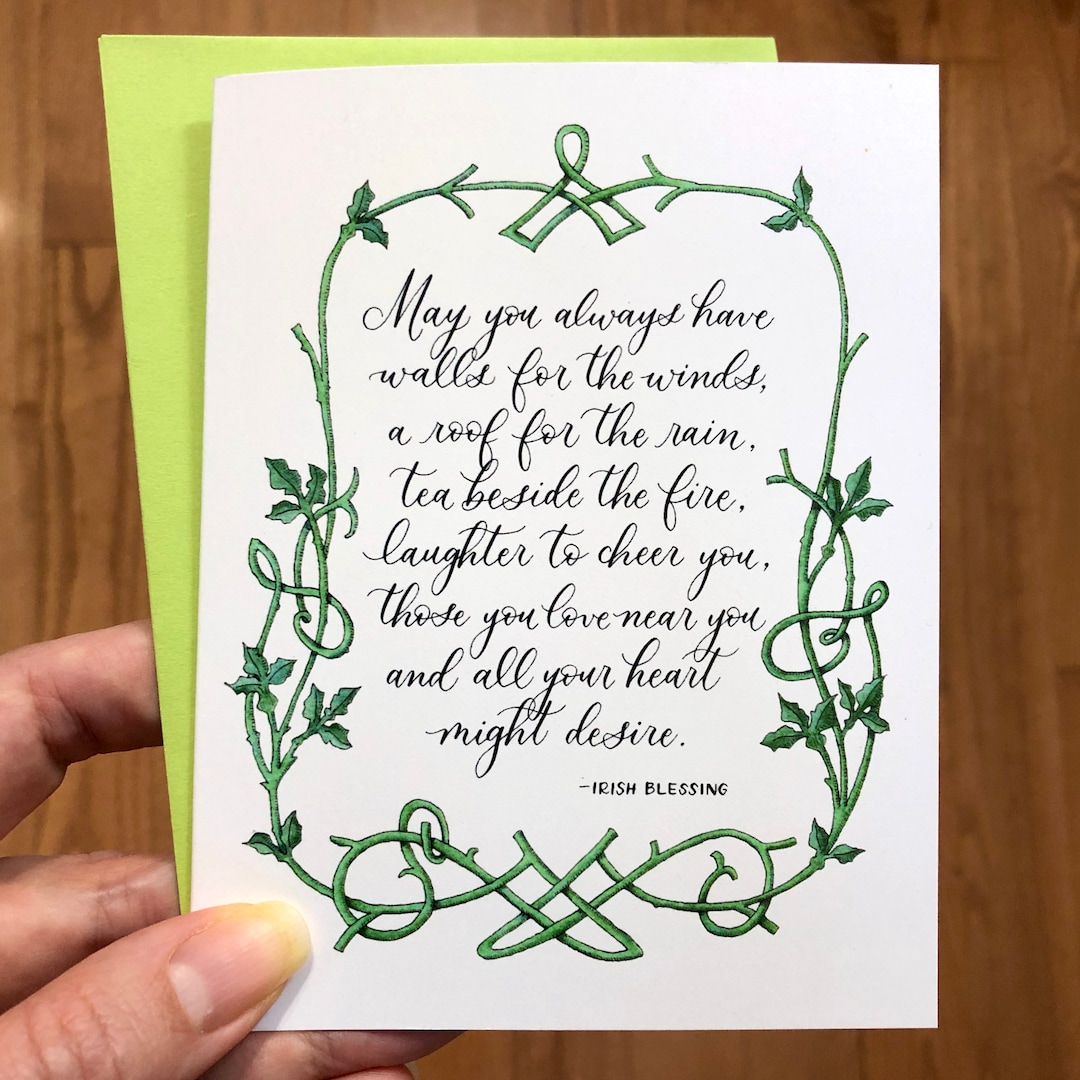 May you always have
walls for the winds,
a roof for the rain,
tea beside the fire,
laughter to cheer you,
those you love near you
and all your heart
might desire.
-IRISH BLESSING